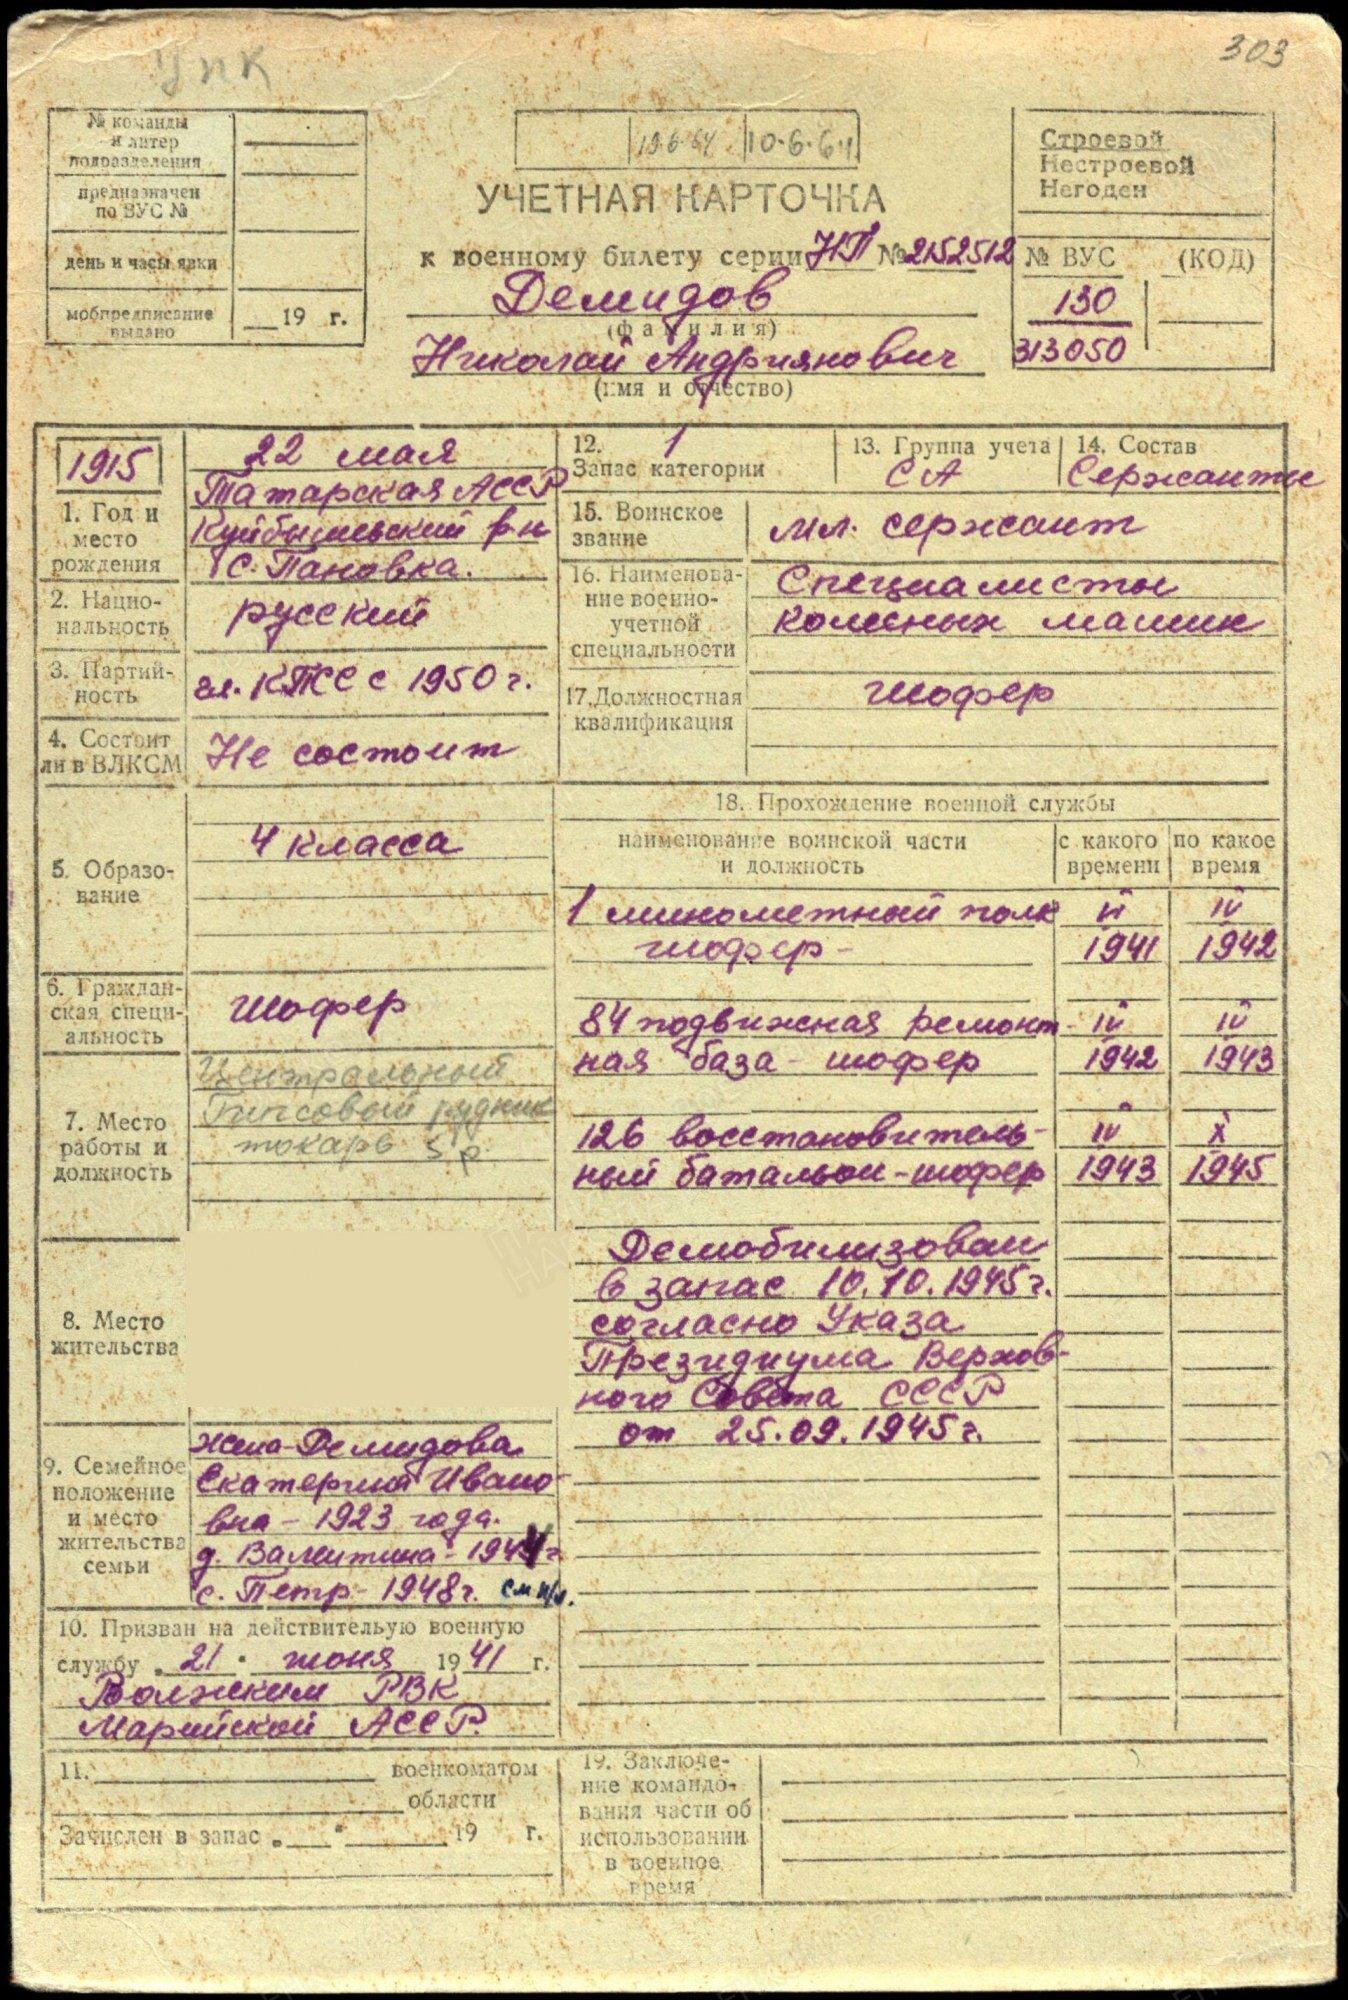 УПК
303
№ команды
и литер
подразделения
предназначен
по ВУС №
день и часы явки
мобпредписание
выдано
19 г.
10·6·64
УЧЕТНАЯ КАРТОЧКА
к военному билету серии НП № 2152512
Демидов
(фамилия)
Николай Андриянович
(имя и отчество)
Строевой
Нестроевой
Негоден
№ ВУС (КОД)
130
313050
1915
1. Год и
место
рождения
22 мая
Татарская АССР
Куйбышевский р-н
с. Пановка.
2. Нацио-
нальность
русский
3. Партий-
ность
чл. КПСС с 1950 г.
4. Состоит
ли в ВЛКСМ
Не состоит
5. Образо-
вание
4 класса
6. Граждан-
ская специ-
альность
шофер
7. Место
работы и
должность
Центральный
Гипсовый рудник
токарь 5 р.
8. Место
жительства
9. Семейное
положение
и место
жительства
семьи
жена - Демидова
Екатерина Ивано-
вна - 1923 года.
д. Валентина - 1944 г
с. Петр - 1948 г. см н/л.
10. Призван на действительую военную
службу „21" июня 1941 г.
Волжским РВК
Марийской АССР.
11. военкоматом
области
Зачислен в запас „ " 19 г.
12. 1
Запас категории
13. Группа учета
СА
14. Состав
Сержанты
15. Воинское
звание
мл. сержант
16. Наименова-
ние военно-
учетной
специальности
Специалисты
колесных машин
17. Должностная
квалификация
шофер
18. Прохождение военной службы
наименование воинской части
и должность
с какого
времени
по какое
время
1 минометный полк VI IV
шофер - 1941 1942
84 подвижная ремонт- IV IV
ная база - шофер 1942 1943
126 восстановитель- IV X
ный батальон - шофер 1943 1945
Демобилизован
в запас 10.10.1945 г.
согласно Указа
Президиума Верхов-
ного Совета СССР
от 25.09.1945 г.
19. Заключе-
ние командо-
вания части об
использовании
в военное
время